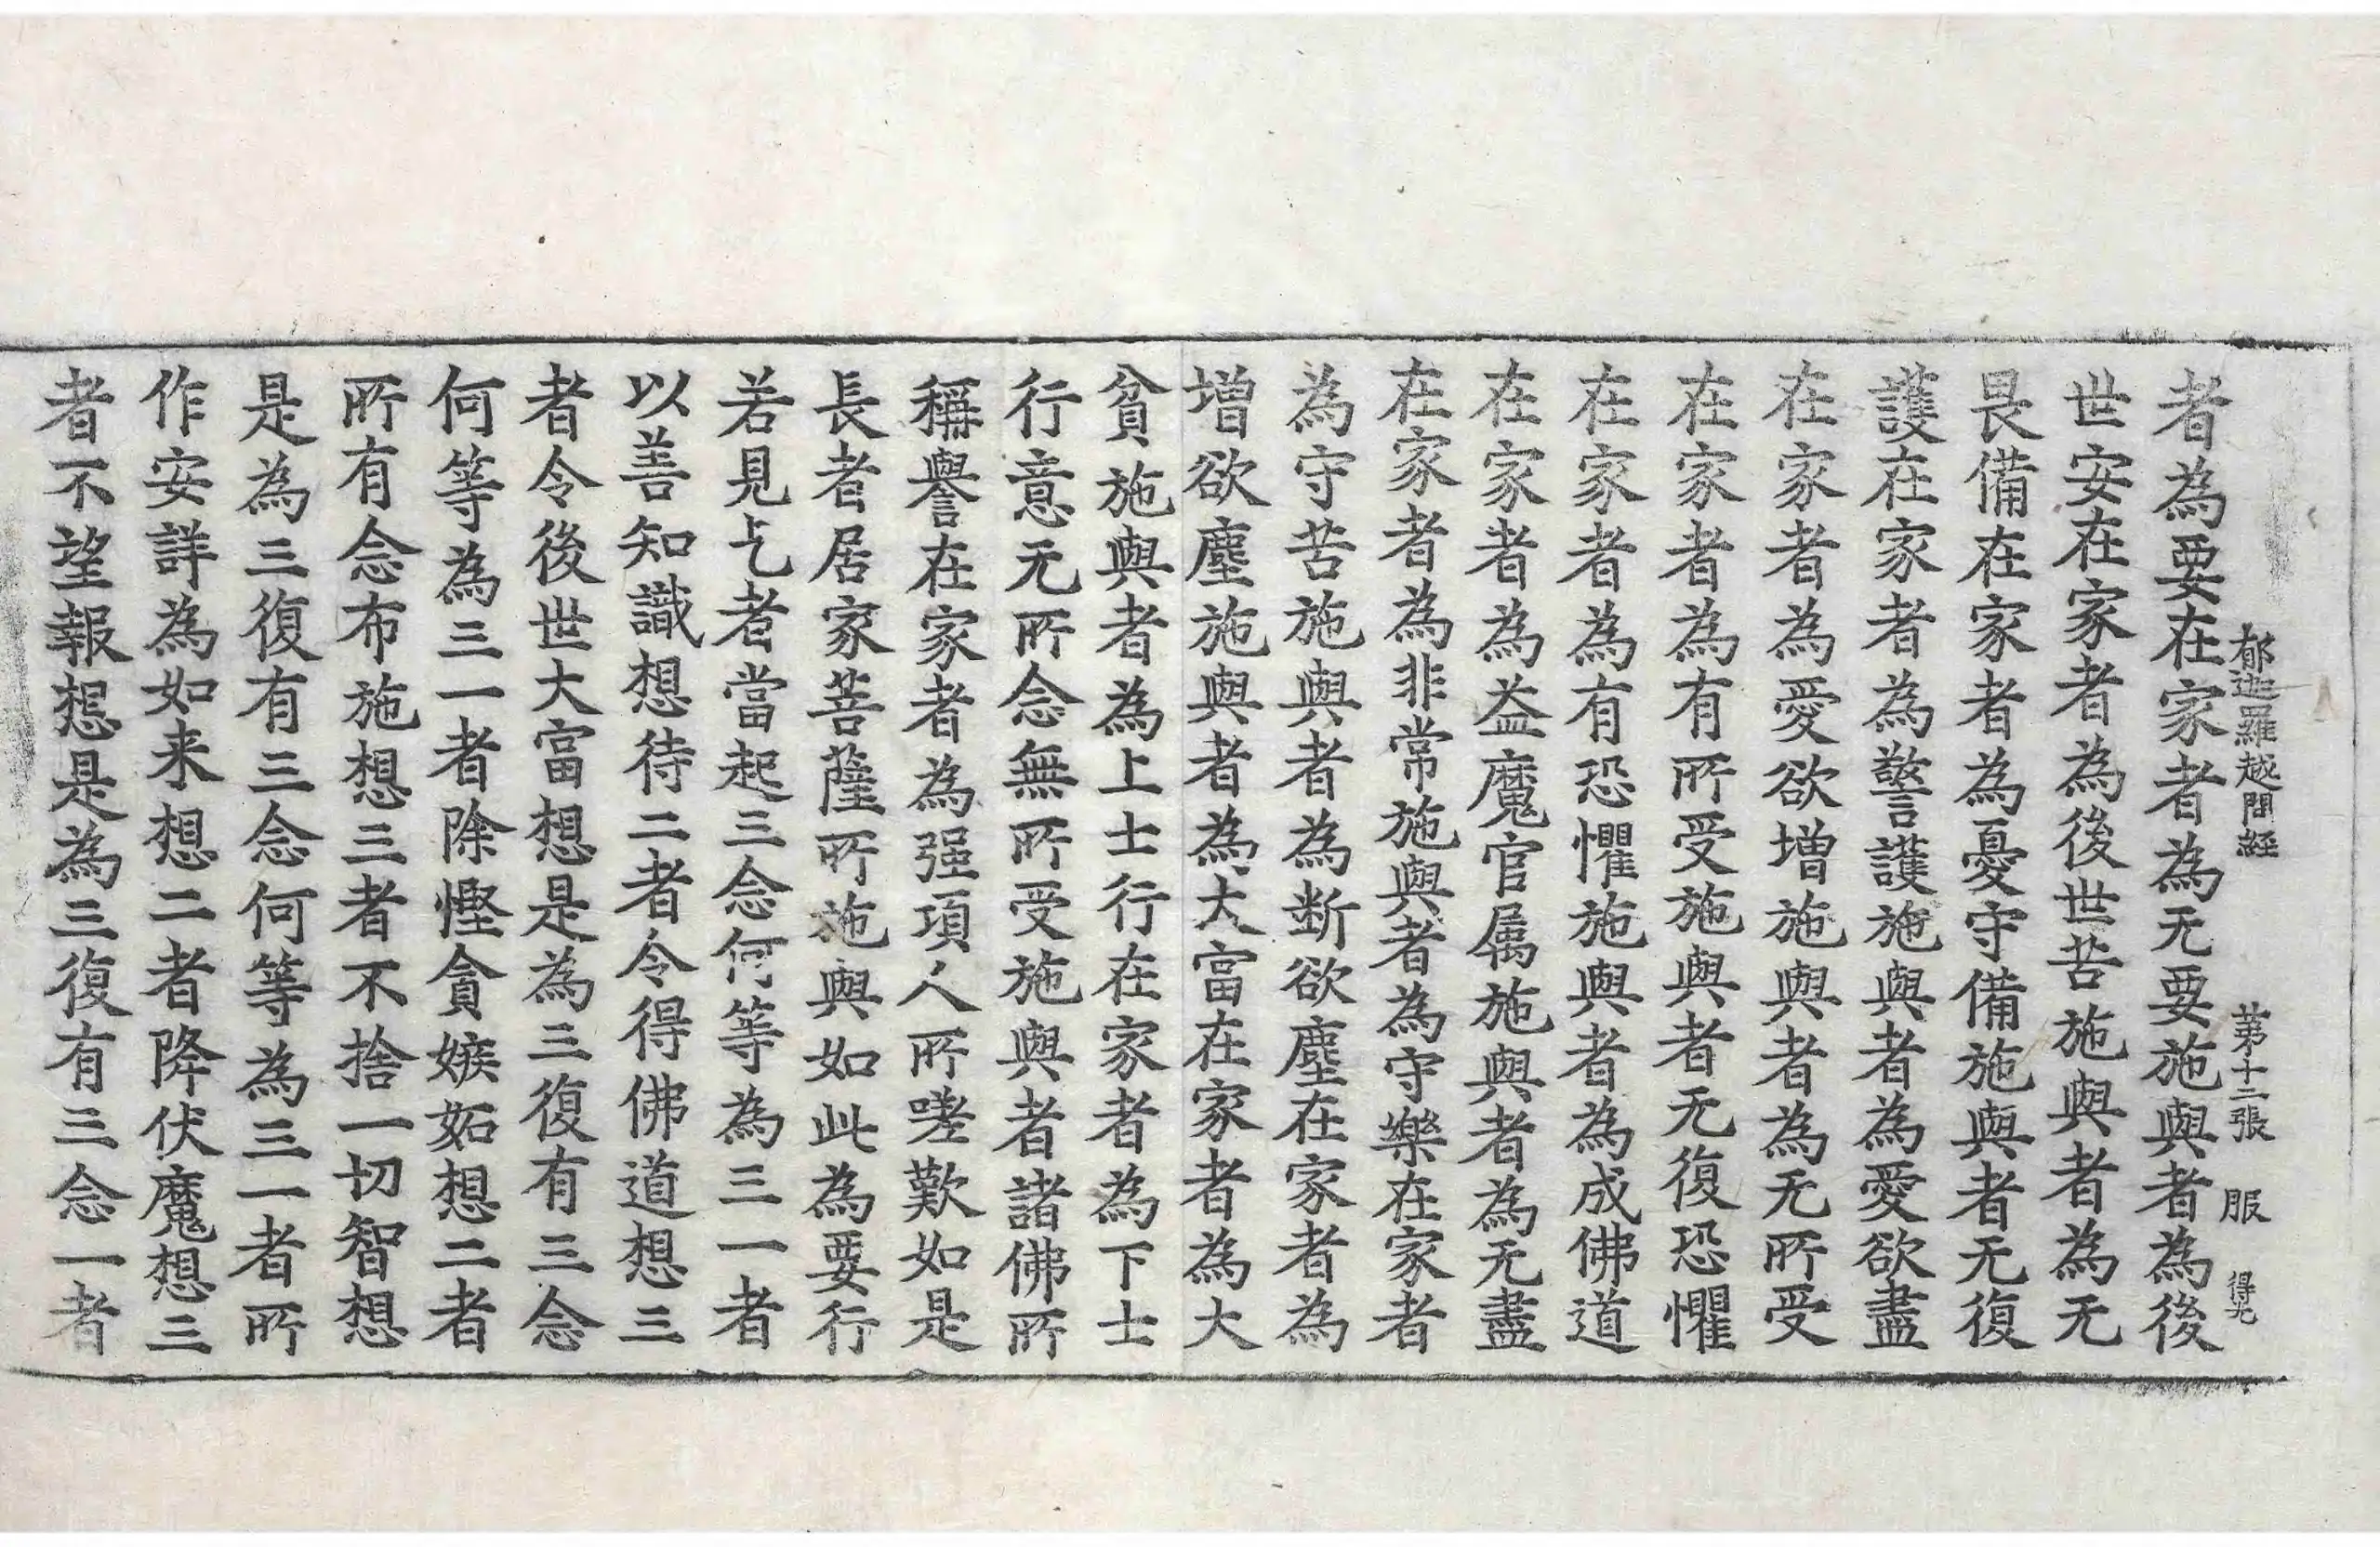 郁迦羅越問經　第十二張　服　得光
者為要在家者為无要施與者為後
世安在家者為後世苦施與者為无
畏備在家者為憂守備施與者无復
護在家者為警護施與者為愛欲盡
在家者為愛欲增施與者為无所受
在家者為有所受施與者无復恐懼
在家者為有恐懼施與者為成佛道
在家者為益魔官属施與者為无盡
在家者為非常施與者為守樂在家者
為守苦施與者為断欲塵在家者為
增欲塵施與者為大富在家者為大
貧施與者為上士行在家者為下士
行意无所念無所受施與者諸佛所
稱譽在家者為强項人所嗟歎如是
長者居家菩薩所施與如此為要行
若見乞者當起三念何等為三一者
以善知識想待二者令得佛道想三
者令後世大富想是為三復有三念
何等為三一者除慳貪嫉妬想二者
所有念布施想三者不捨一切智想
是為三復有三念何等為三一者所
作安詳為如来想二者降伏魔想三
者不望報想是為三復有三念一者